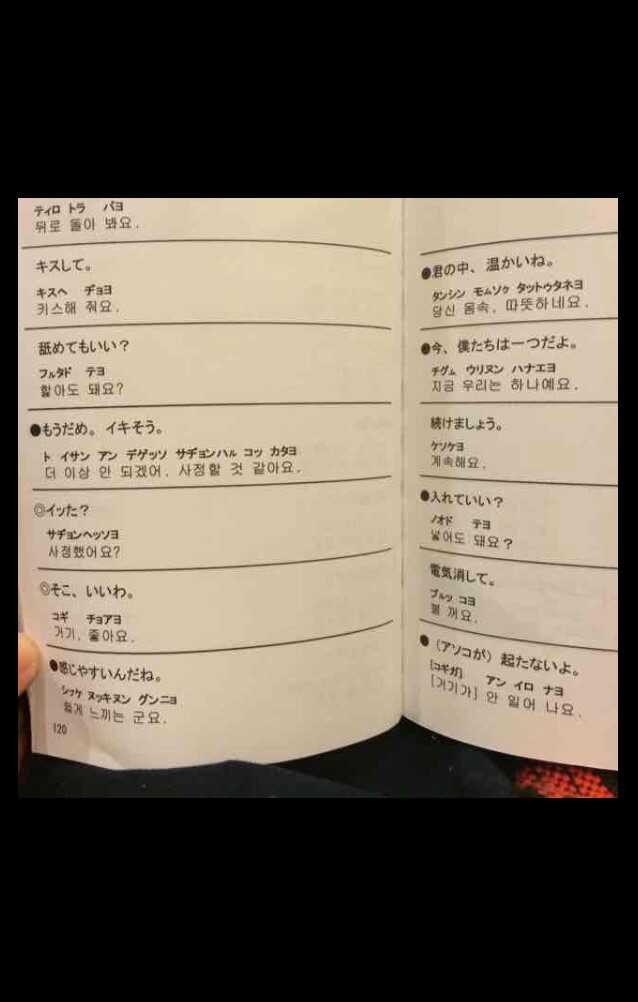 ティロ トラ パヨ
뒤로 돌아 봐요.
キスして。
キスヘ ヂョヨ
키스해 줘요.
舐めてもいい？
フルタド テヨ
핥아도 돼요?
●もうだめ。イキそう。
ト イサン アン デゲッソ サヂョンハル コッ カタヨ
더 이상 안 되겠어. 사정할 것 같아요.
◎イッた？
サヂョンヘッソヨ
사정했어요?
◎そこ、いいわ。
コギ チョアヨ
거기, 좋아요.
●感じやすいんだね。
シュケ ヌッキヌン グンニョ
쉽게 느끼는 군요.
120
●君の中、温かいね。
タンシン モムソク タットゥタネヨ
당신 몸속, 따뜻하네요.
●今、僕たちは一つだよ。
チグム ウリヌン ハナエヨ
지금 우리는 하나예요.
続けましょう。
ケソケヨ
계속해요.
●入れていい？
ノオド テヨ
넣어도 돼요?
電気消して。
プルッ コヨ
불 꺼요.
●（アソコが）起たないよ。
[コギガ] アン イロ ナヨ
[거기가] 안 일어 나요.